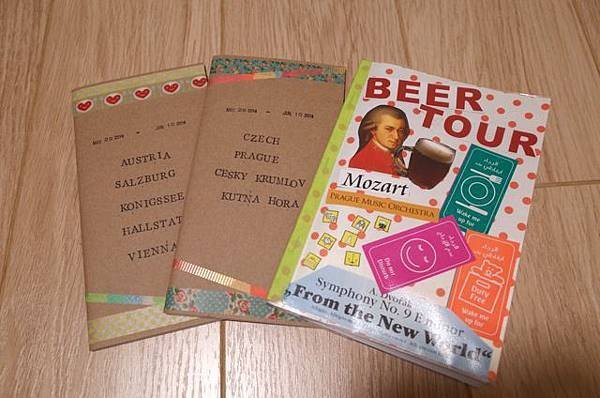 AUSTRIA
SALZBURG
KONIGSSEE
HALLSTAT
VIENNA
CZECH
PRAGUE
CESKY KRUMLOV
KUTNA HORA
BEER
TOUR
Mozart
PRAGUE MUSIC ORCHESTRA
Wake me
up for
Do not
Disturb
Duty Free
Wake me
up for
A. Dvořák
Symphony No. 9 E minor
„From the New World“